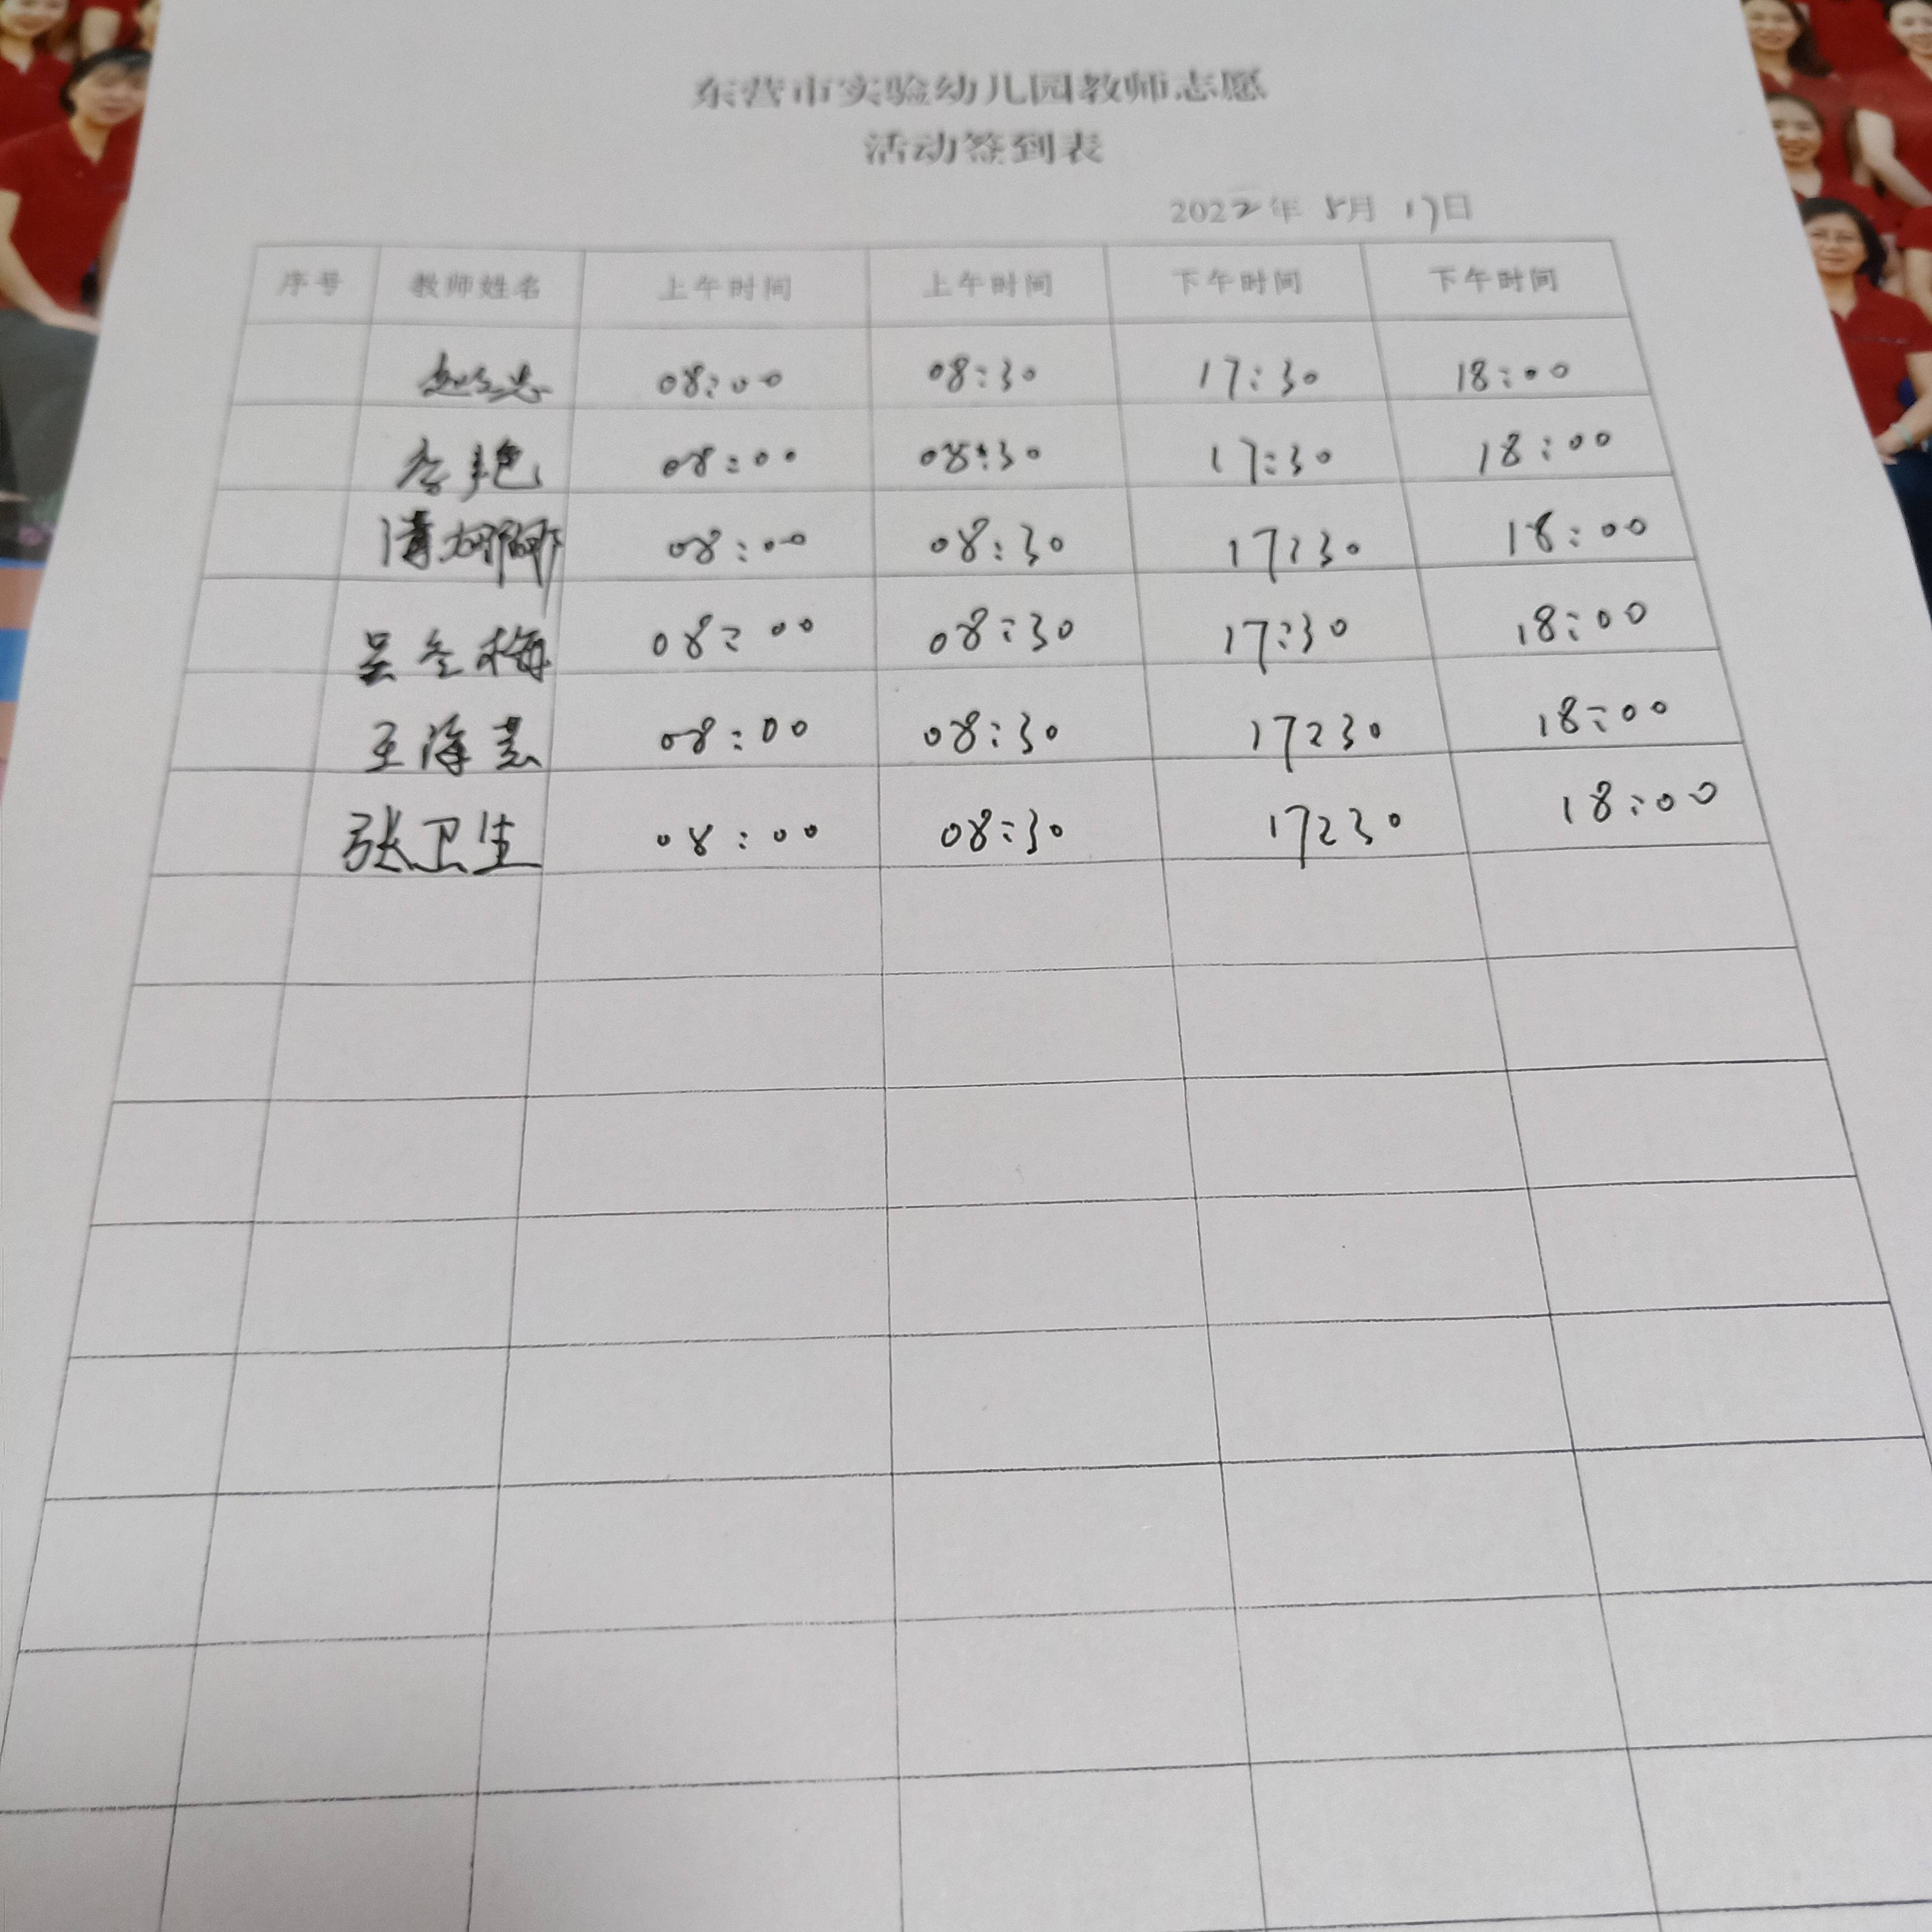 东营市实验幼儿园教师志愿
活动签到表
2022年 5月 17日
序号 教师姓名 上午时间 上午时间 下午时间 下午时间
08:00 08:30 17:30 18:00
李艳 08:00 08:30 17:30 18:00
08:00 08:30 17:30 18:00
吴冬梅 08:00 08:30 17:30 18:00
王海芸 08:00 08:30 17:30 18:00
张卫生 08:00 08:30 17:30 18:00